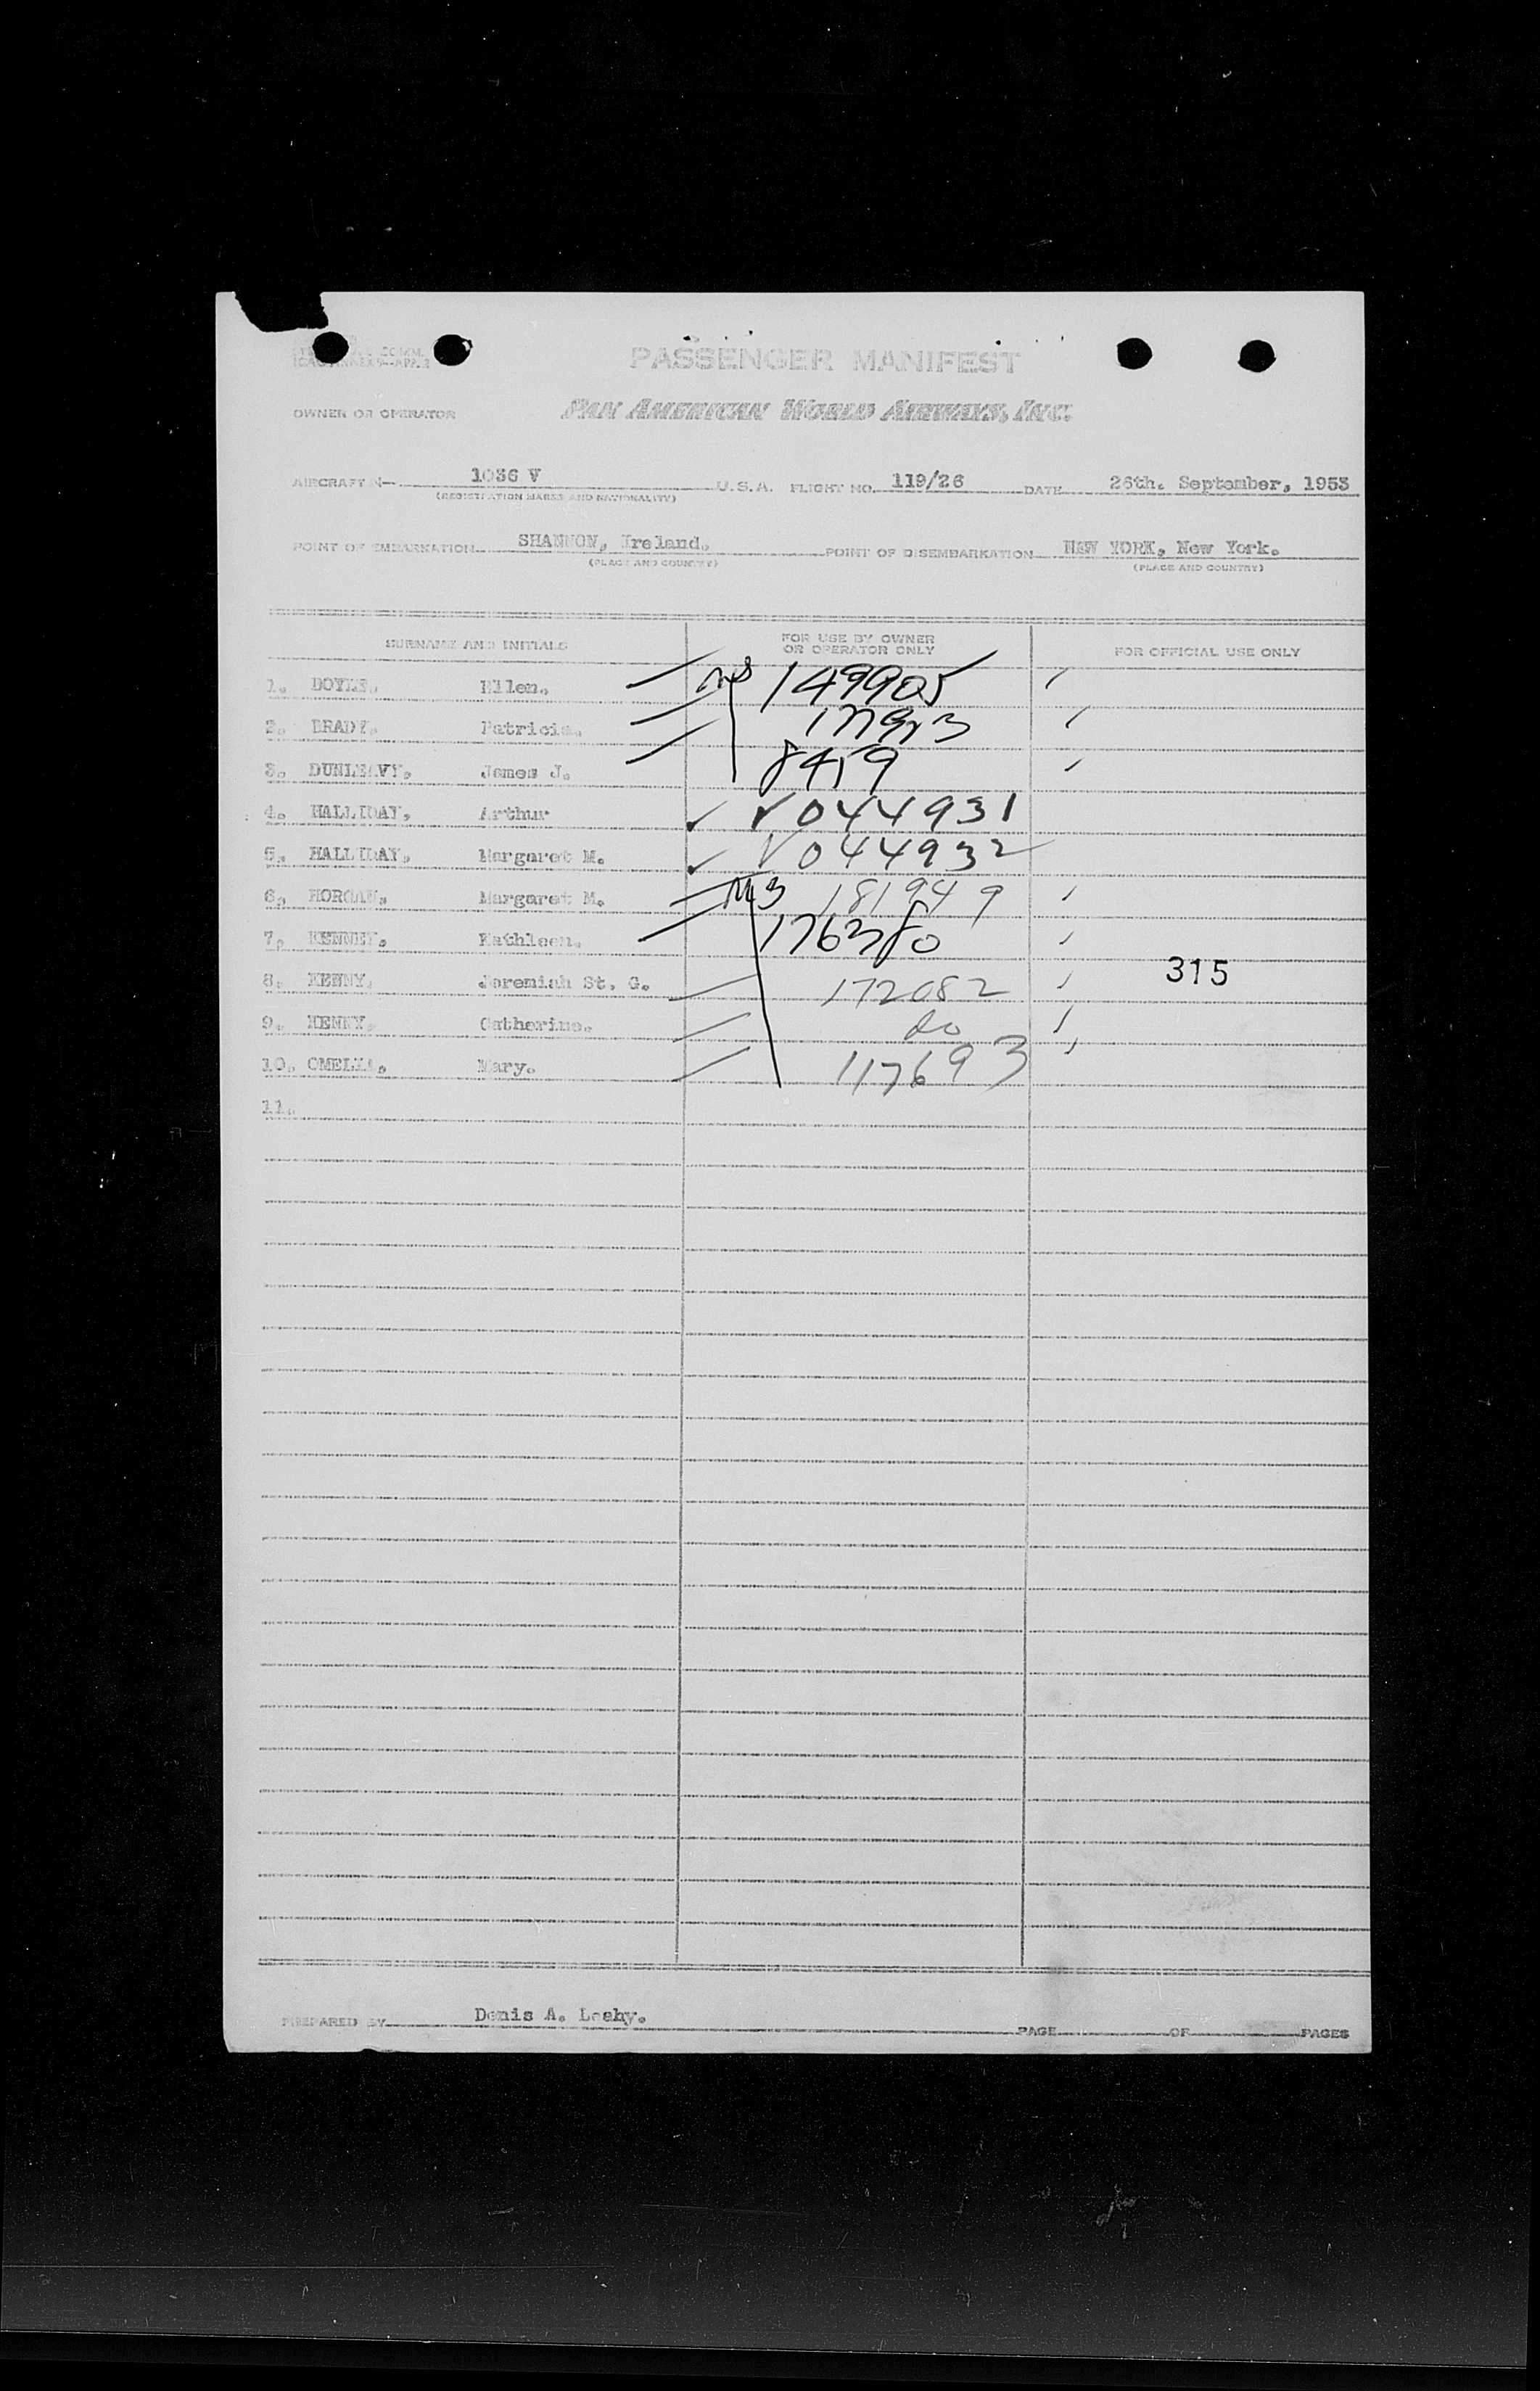 PASSENGER MANIFEST
OWNER OR OPERATOR PAN AMERICAN WORLD AIRWAYS, INC.
AIRCRAFT N— 1036 V U.S.A. FLIGHT NO. 119/26 DATE 26th. September, 1953
(REGISTRATION MARKS AND NATIONALITY)
POINT OF EMBARKATION SHANNON, Ireland. POINT OF DISEMBARKATION NEW YORK, New York.
(PLACE AND COUNTRY) (PLACE AND COUNTRY)
SURNAME AND INITIALS FOR USE BY OWNER OR OPERATOR ONLY FOR OFFICIAL USE ONLY
1. DOYLE, Ellen. 149905
2. BRADY, Patricia.
3. DUNLEAVY, James J.
4. HALLIDAY, Arthur V044931
5. HALLIDAY, Margaret M. V044932
6. Margaret M. 181949
7. KENNEY, Kathleen. 176380
8. KENNY, Jeremiah St. G. 172082 315
9. KENNY, Catherine. do
10. Mary. 117693
11.
PREPARED BY Denis A. Leahy. PAGE OF PAGES